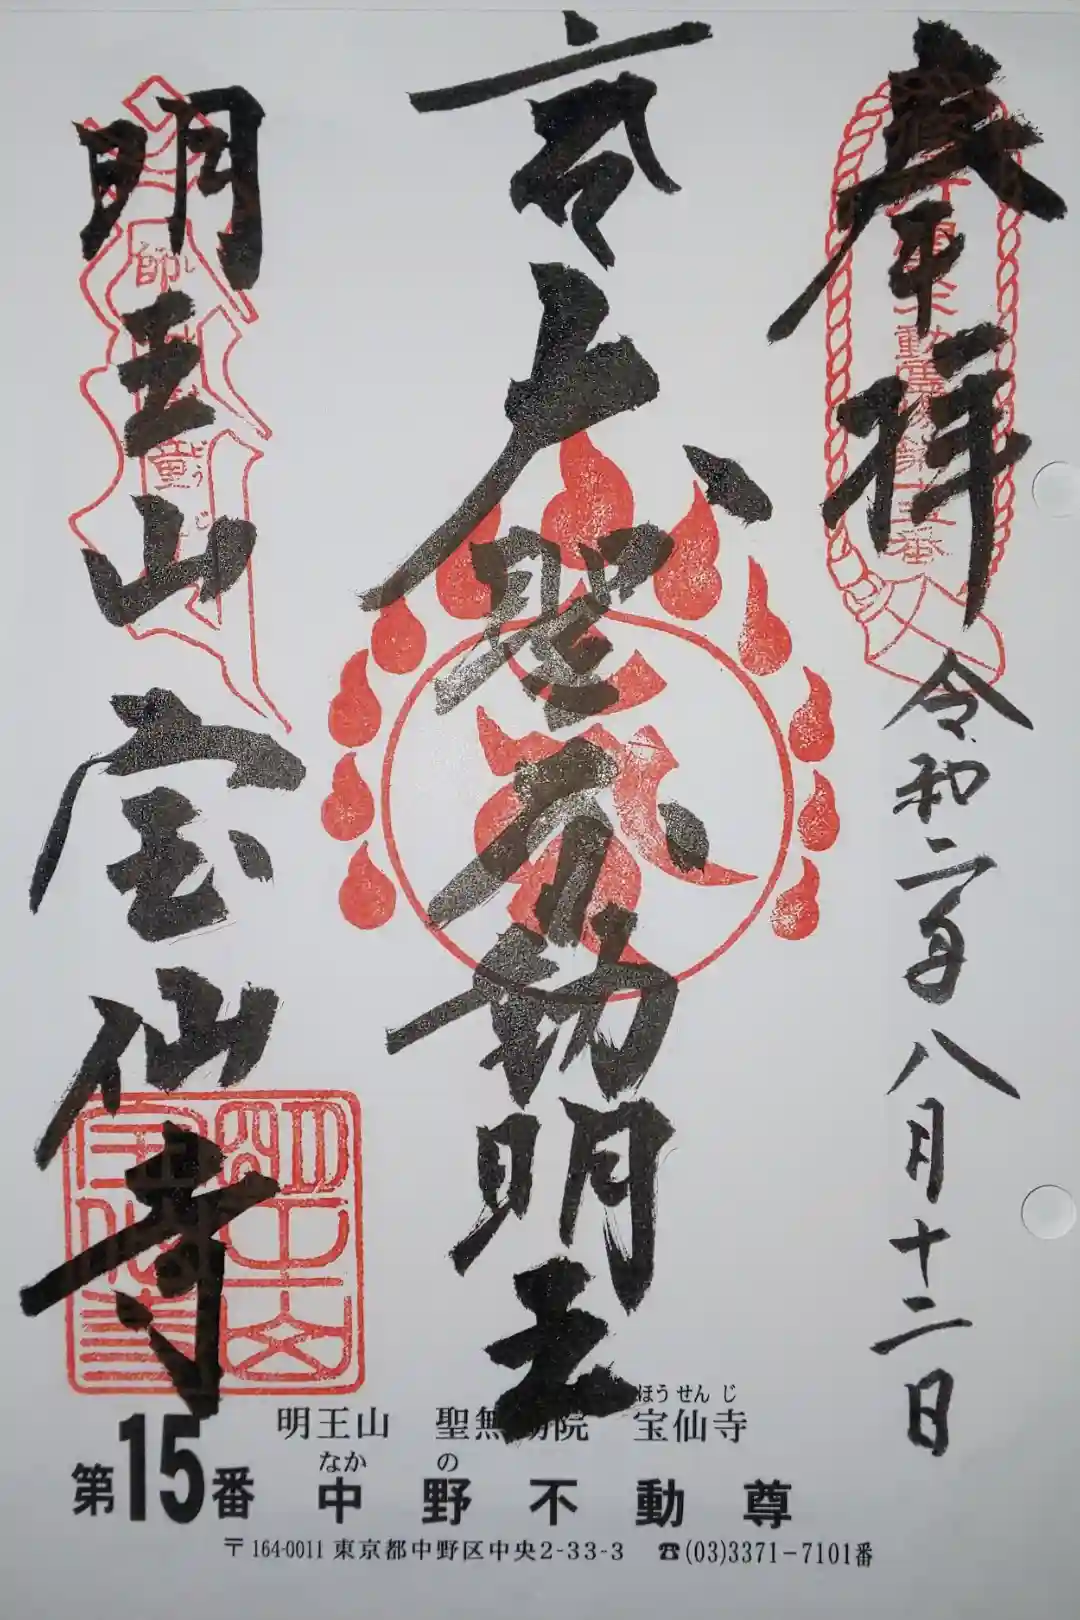 奉拝
令和二年八月十二日
大聖不動明王
明王山
宝仙寺
ほうせんじ
明王山 聖無動院 宝仙寺
なか の
第15番 中野不動尊
〒164-0011 東京都中野区中央2-33-3 ☎(03)3371-7101番